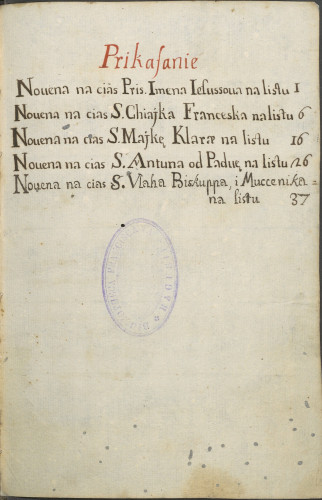 Prikasanie
Novena na ciás Pris. Imena Iesussova na listu 1
Novena na cias S. Chiajka Franceska na listu 6
Novena na cias S. Majkę Klaræ na listu 16
Novena na cias S. Antuna od Paduę na listu 26
Novena na cias S. Vlaha Biskuppa, i Muccenika =
na listu 37